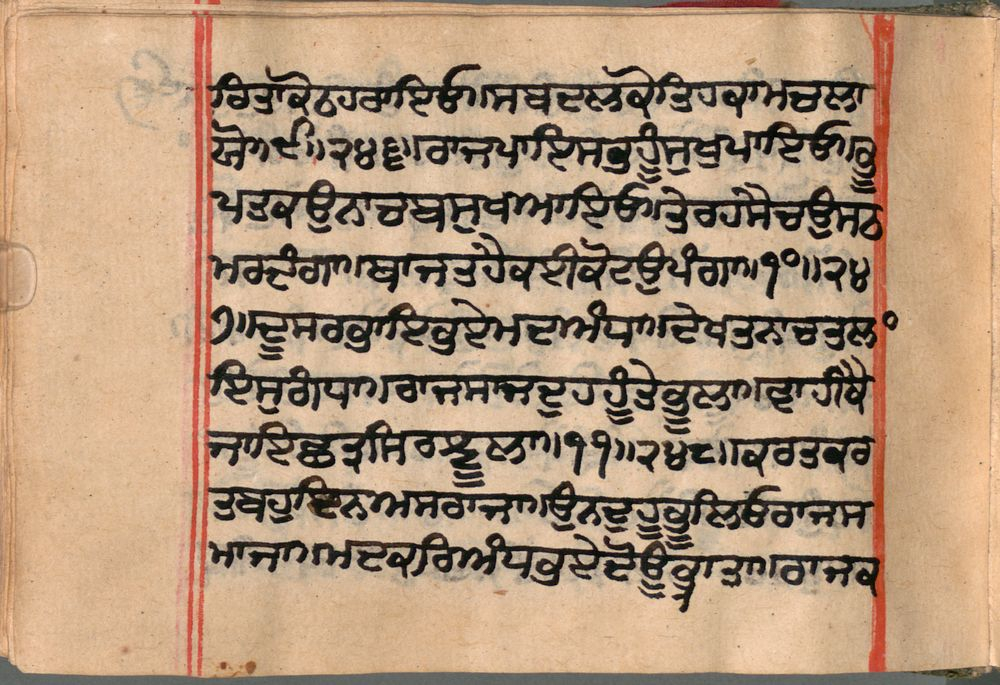 ਰਿਤਾਕੋਠਹਰਾਇਓ॥ਸਬਦਲਕੋਤਿਹਕਾਮਚਲਾ
ਯੋ॥੯॥੨੪੬॥ਰਾਜਪਾਇਸਭਹੂੰਸੁਖੁਪਾਇਓ॥ਭੂ
ਪਤਕਉਨਾਚਬਸੁਖਆਇਓ॥ਤੇਰਹਸੈਚਉਸਠ
ਮਰਦੰਗਾ॥ਬਾਜਤਹੈਕਈਕੋਟਉਪੰਗਾ॥੧੦॥੨੪
੭॥ਦੂਸਰਭਾਇਭਏਮਦਅੰਧਾ॥ਦੇਖਤਨਾਚਤਲਾ
ਇਸੁਗੰਧਾ॥ਰਾਜਸਾਜਦੁਹਹੂੰਤੇਭੂਲਾ॥ਵਾਹੀਕੈ
ਜਾਇਛਤ੍ਰਸਿਰਝੂਲਾ॥੧੧॥੨੪੮॥ਕਰਤਕਰ
ਤਬਹੁਦਿਨਅਸਰਾਜਾ॥ਉਨਦੁਹੂਭੂਲਿਓਰਾਜਸ
ਮਾਜਾ॥ਮਦਕਰਿਅੰਧਭਏਦੋਊਭ੍ਰਾਤਾ॥ਰਾਜਕ